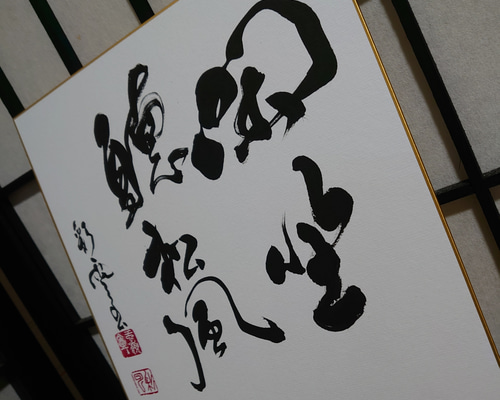 閑坐
聴松風